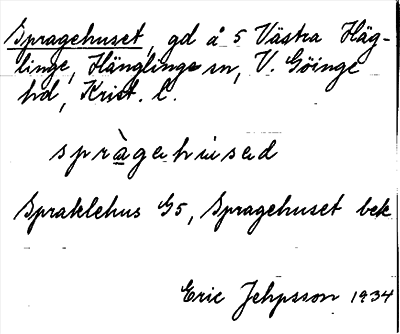 Spragehuset, gd å 5 Västra Häg-
linge, Hänglinge sn, V. Göinge
hd, Krist. l.
spràgahùsad
Spraklehus G5, Spragehuset bek
Eric Jehpsson 1934